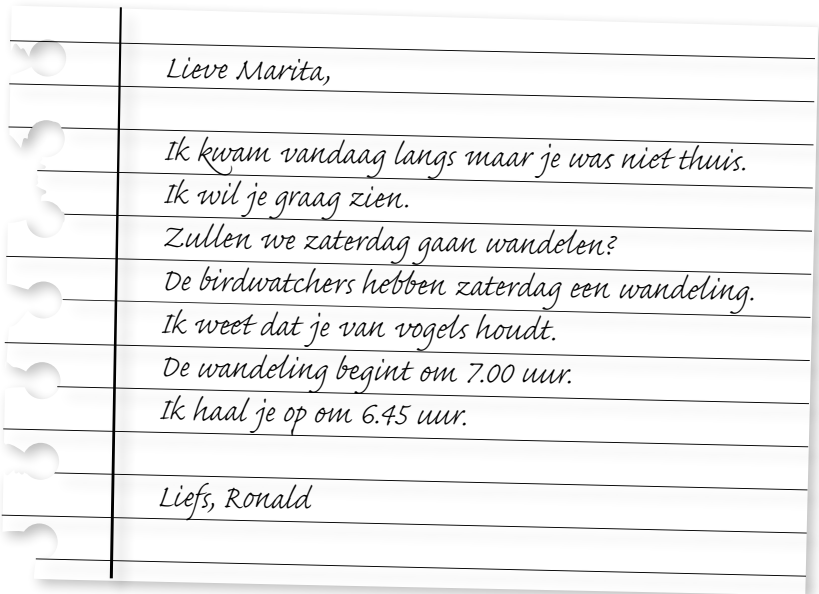 Lieve Marita,
Ik kwam vandaag langs maar je was niet thuis.
Ik wil je graag zien.
Zullen we zaterdag gaan wandelen?
De birdwatchers hebben zaterdag een wandeling.
Ik weet dat je van vogels houdt.
De wandeling begint om 7.00 uur.
Ik haal je op om 6.45 uur.
Liefs, Ronald